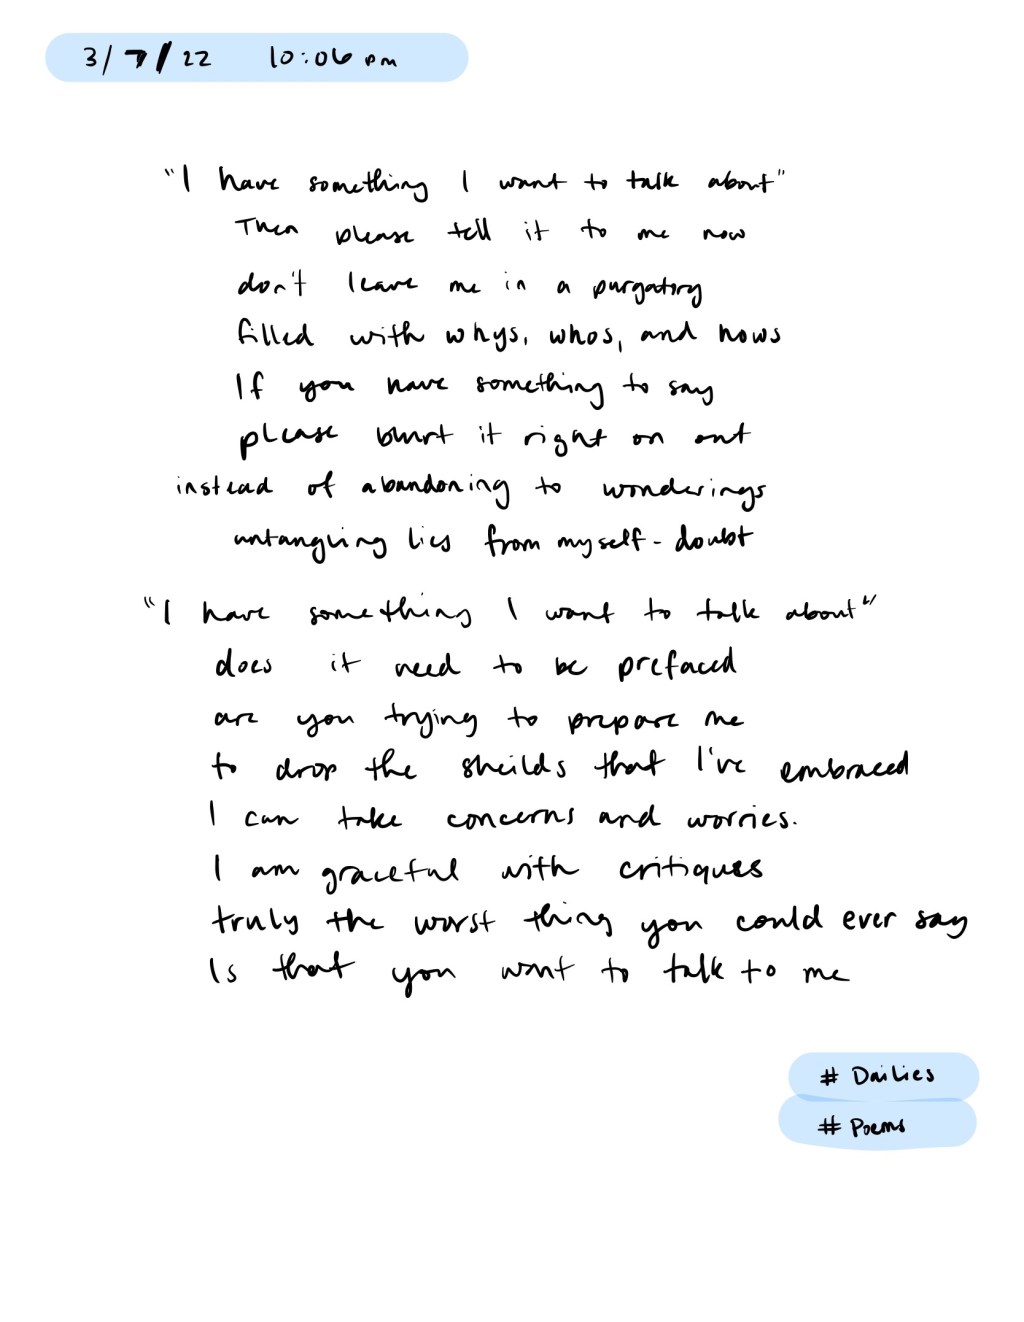 3/7/22 10:06 pm
"I have something I want to talk about"
Then please tell it to me now
don't leave me in a purgatory
filled with whys, whos, and hows
If you have something to say
please blurt it right on out
instead of abandoning to wonderings
untangling lies from myself-doubt
"I have something I want to talk about"
does it need to be prefaced
are you trying to prepare me
to drop the sheilds that I've embraced
I can take concerns and worries.
I am graceful with critiques
truly the worst thing you could ever say
Is that you want to talk to me
# Dailies
# Poems